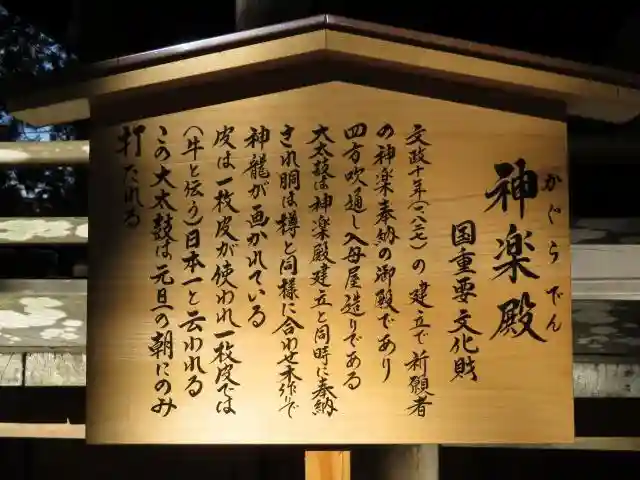 神楽殿
かぐらでん
国重要文化財
文政十年(一八二七)の建立で祈願者
の神楽奉納の御殿であり
四方吹き通し入母屋造りである
大太鼓は神楽殿建立と同時に奉納
され胴は樽と同様に合わせ木作りで
神龍が画かれている
皮は一枚皮が使われ一枚皮では
(牛と伝う)日本一と云われる
この大太鼓は元旦の朝にのみ
打たれる